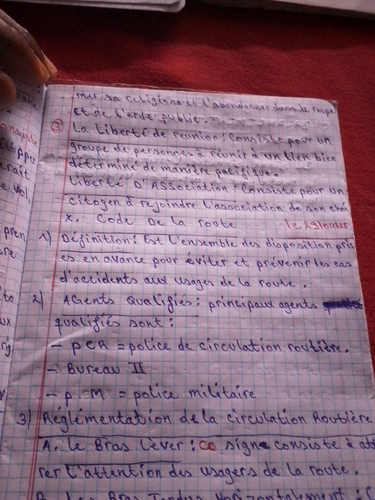 mer sa religion et l'abandonner dans le respe
et de l'ordre public.
③ La liberté de reunion: Consiste pour un
groupe de personnes à réunir à un lien bien
déterminé de manière pacifique.
liberté D'Association: Consiste pour un
citoyen à rejoindre l'association de son choi
x. Code De la route
1) Définition: Est l'ensemble des disposition pris
es en avance pour éviter et prévenir les cas
d'accidents aux usagers de la route.
2) Agents Qualifiés: principaux agents
qualifiés sont:
- PCR = police de circulation routière.
- Bureau II
- P.M = police militaire
3) Réglémentation de la circulation Routière
A. le Bras Lèver: Ce signe consiste à att
rer l'attention des usagers de la route.
Bras Tendus Horizontalement: